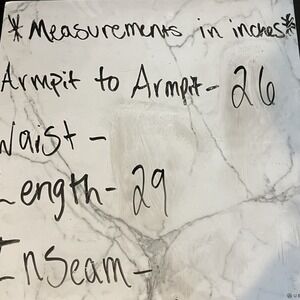 * Measurements in inches*
Armpit to Armpit- 26
Waist -
Length- 29
Inseam-